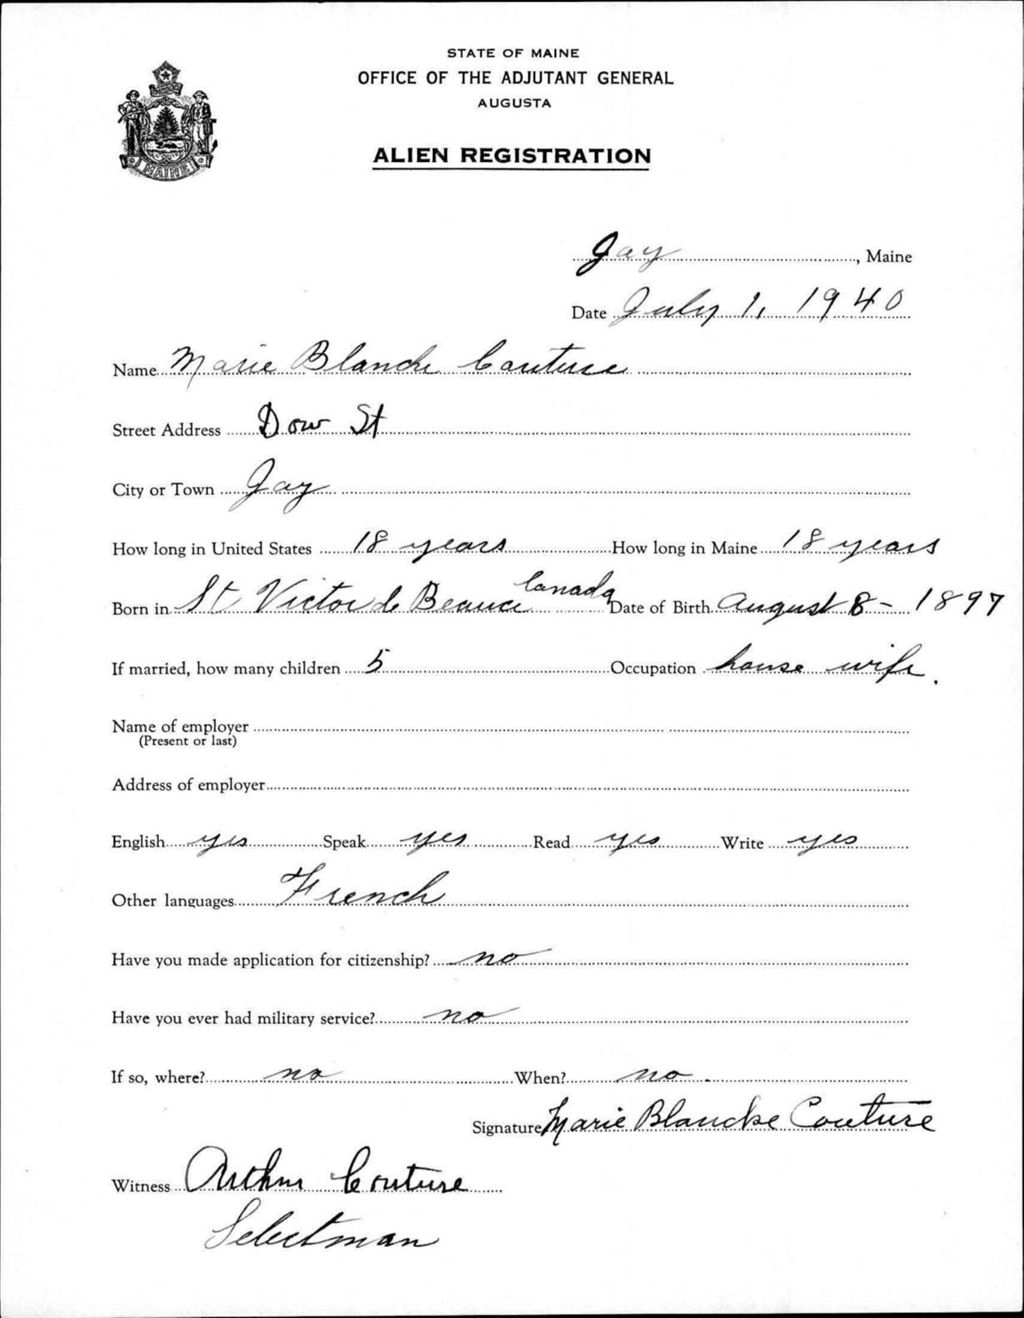 STATE OF MAINE
OFFICE OF THE ADJUTANT GENERAL
AUGUSTA
ALIEN REGISTRATION
MAINE
Jay, Maine
Date July 1, 1940
Name Marie Blanche Couture
Street Address Dow St
City or Town Jay
How long in United States 18 years How long in Maine 18 years
Born in St Victor de Beauce Canada Date of Birth August 8 - 1897
If married, how many children 5 Occupation house wife.
Name of employer
(Present or last)
Address of employer
English yes Speak yes Read yes Write yes
Other languages French
Have you made application for citizenship? no
Have you ever had military service? no
If so, where? no When? no
Signature Marie Blanche Couture
Witness Arthur Couture
Selectman